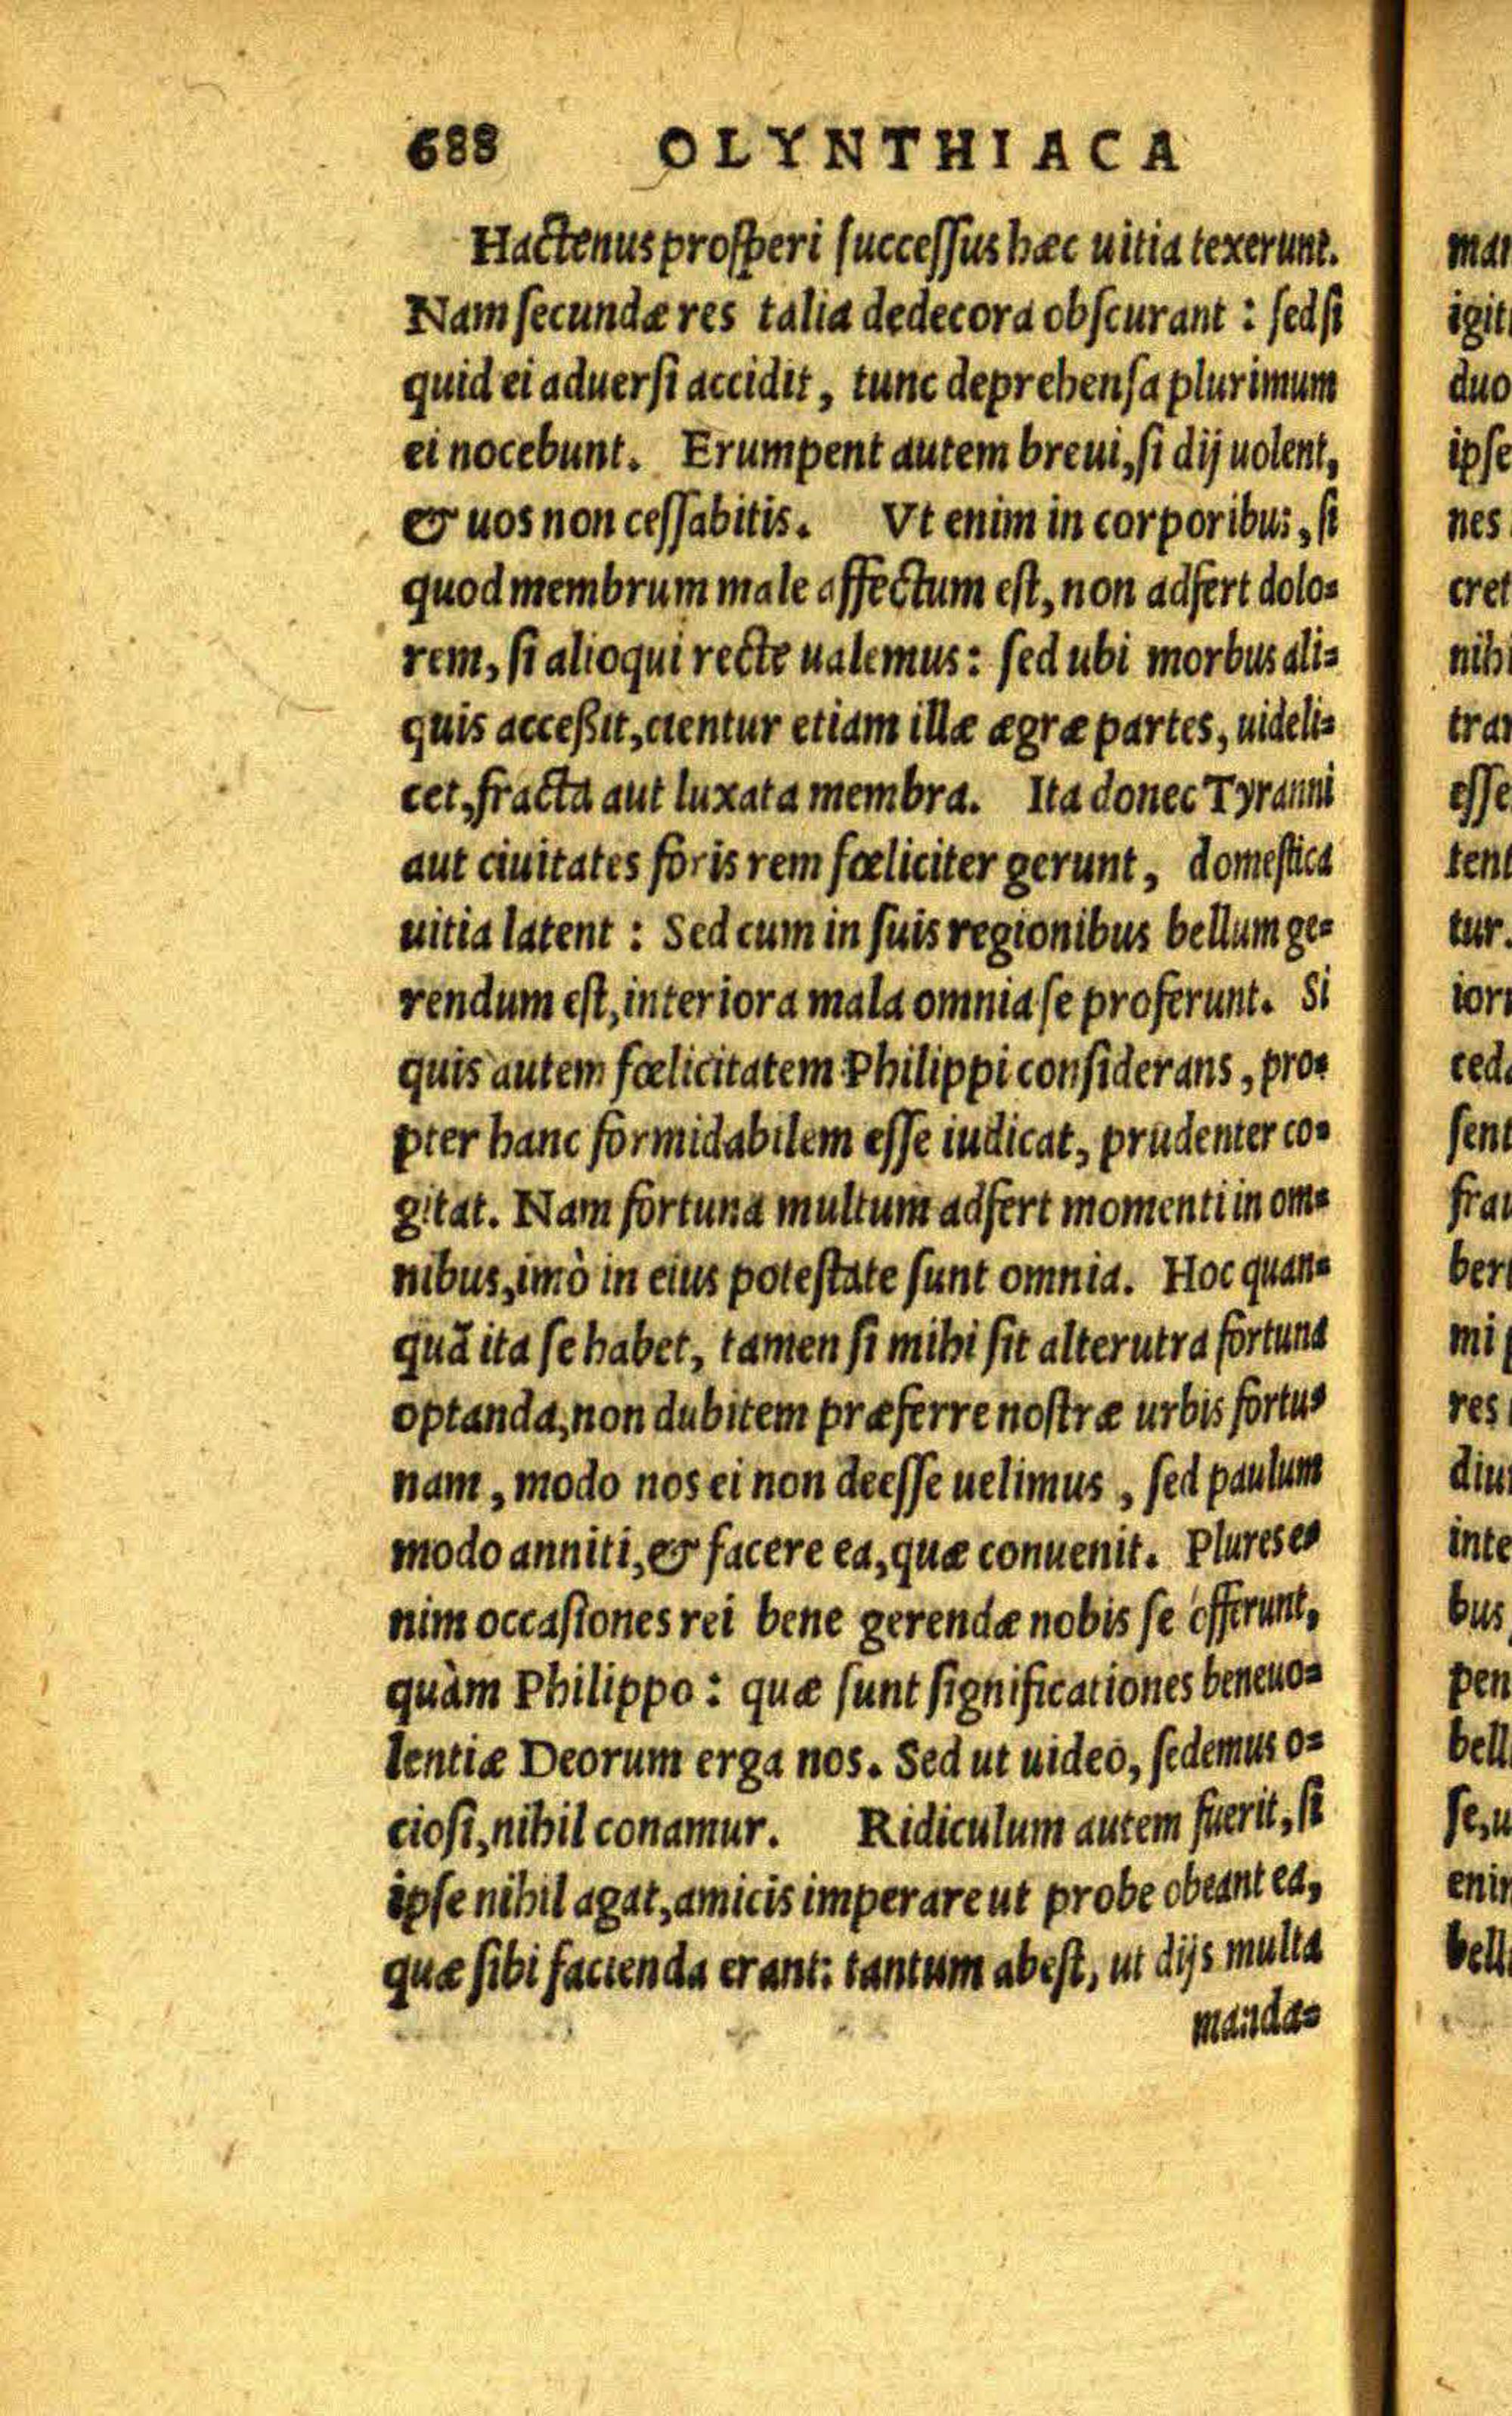 688 OLYNTHIACA
Hactenus prosperi successus hæc uitia texerunt.
Nam secundæ res talia dedecora obscurant : sed si
quid ei aduersi accidit, tunc deprehensa plurimum
ei nocebunt. Erumpent autem breui, si dij uolent,
& uos non cessabitis. Vt enim in corporibus, si
quod membrum male affectum est, non adfert dolo=
rem, si alioqui recte ualemus: sed ubi morbus ali=
quis acceßit, cientur etiam illæ ægræ partes, uideli=
cet, fracta aut luxata membra. Ita donec Tyranni
aut ciuitates foris rem fœliciter gerunt, domestica
uitia latent : Sed cum in suis regionibus bellum ge=
rendum est, interiora mala omnia se proferunt. Si
quis autem fœlicitatem Philippi considerans, pro=
pter hanc formidabilem esse iudicat, prudenter co=
gitat. Nam fortuna multum adfert momenti in om=
nibus, imò in eius potestate sunt omnia. Hoc quan=
quā ita se habet, tamen si mihi sit alterutra fortuna
optanda, non dubitem præferre nostræ urbis fortu=
nam, modo nos ei non deesse uelimus, sed paulum
modo anniti, & facere ea, quæ conuenit. Plures e=
nim occasiones rei bene gerendæ nobis se offerunt,
quàm Philippo: quæ sunt significationes beneuo=
lentiæ Deorum erga nos. Sed ut uideo, sedemus o=
ciosi, nihil conamur. Ridiculum autem fuerit, si
ipse nihil agat, amicis imperare ut probe obeant ea,
quæ sibi facienda erant: tantum abest, ut dijs multa
manda=
igit
duo
ipse
nes
cret
nih
esse
tent
tur.
sent
mi
res
inte
bus
pen
bell
bell